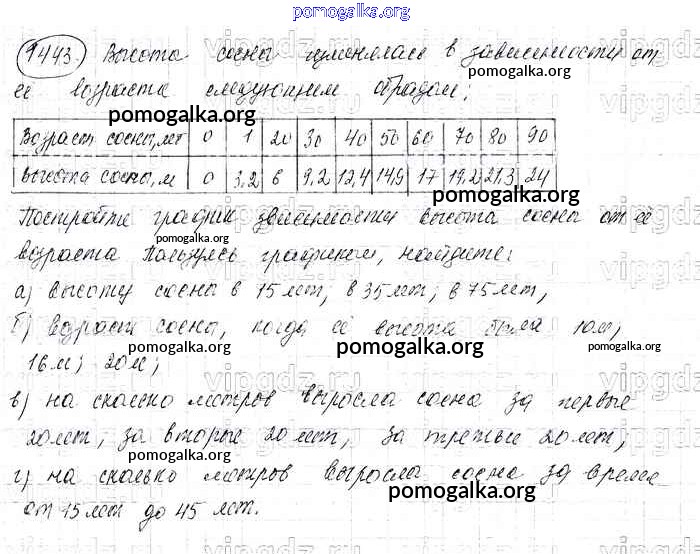 pomogalka.org
1443. Высота сосны изменялась в зависимости от
pomogalka.org
её возраста следующим образом:
pomogalka.org
Возраст сосны, лет 0 1 20 30 40 50 60 70 80 90
Высота сосны, м 0 3,2 6 9,2 12,4 14,9 17 19,2 21,3 24
pomogalka.org
Постройте график зависимости высоты сосны от её
pomogalka.org
возраста. Пользуясь графиком, найдите:
pomogalka.org
а) высоту сосны в 15 лет; в 35 лет; в 75 лет;
б) возраст сосны, когда её высота была 10м;
pomogalka.org pomogalka.org pomogalka.org
16м; 20м;
в) на сколько метров выросла сосна за первые
20 лет, за вторые 20 лет, за третьи 20 лет;
pomogalka.org
г) на сколько метров выросла сосна за время
pomogalka.org
от 15 лет до 45 лет.